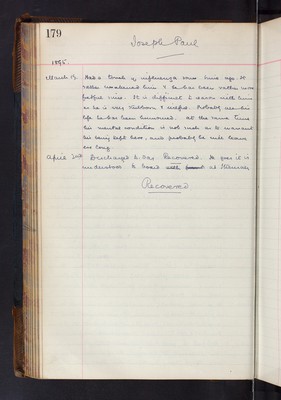 179
Joseph Paul
1895.
March 19. Had a touch of influenza some time ago. It
rather weakened him & he has been rather more
fretful since. It is difficult to reason with him
as he is very stubborn & selfish. Probably all his
life he has been humoured. At the same time
his mental condition is not such as to warrant
his being kept here, and probably he will leave
ere long.
April 2nd Discharged to day. Recovered. He goes it is
understood to board at
Recovered